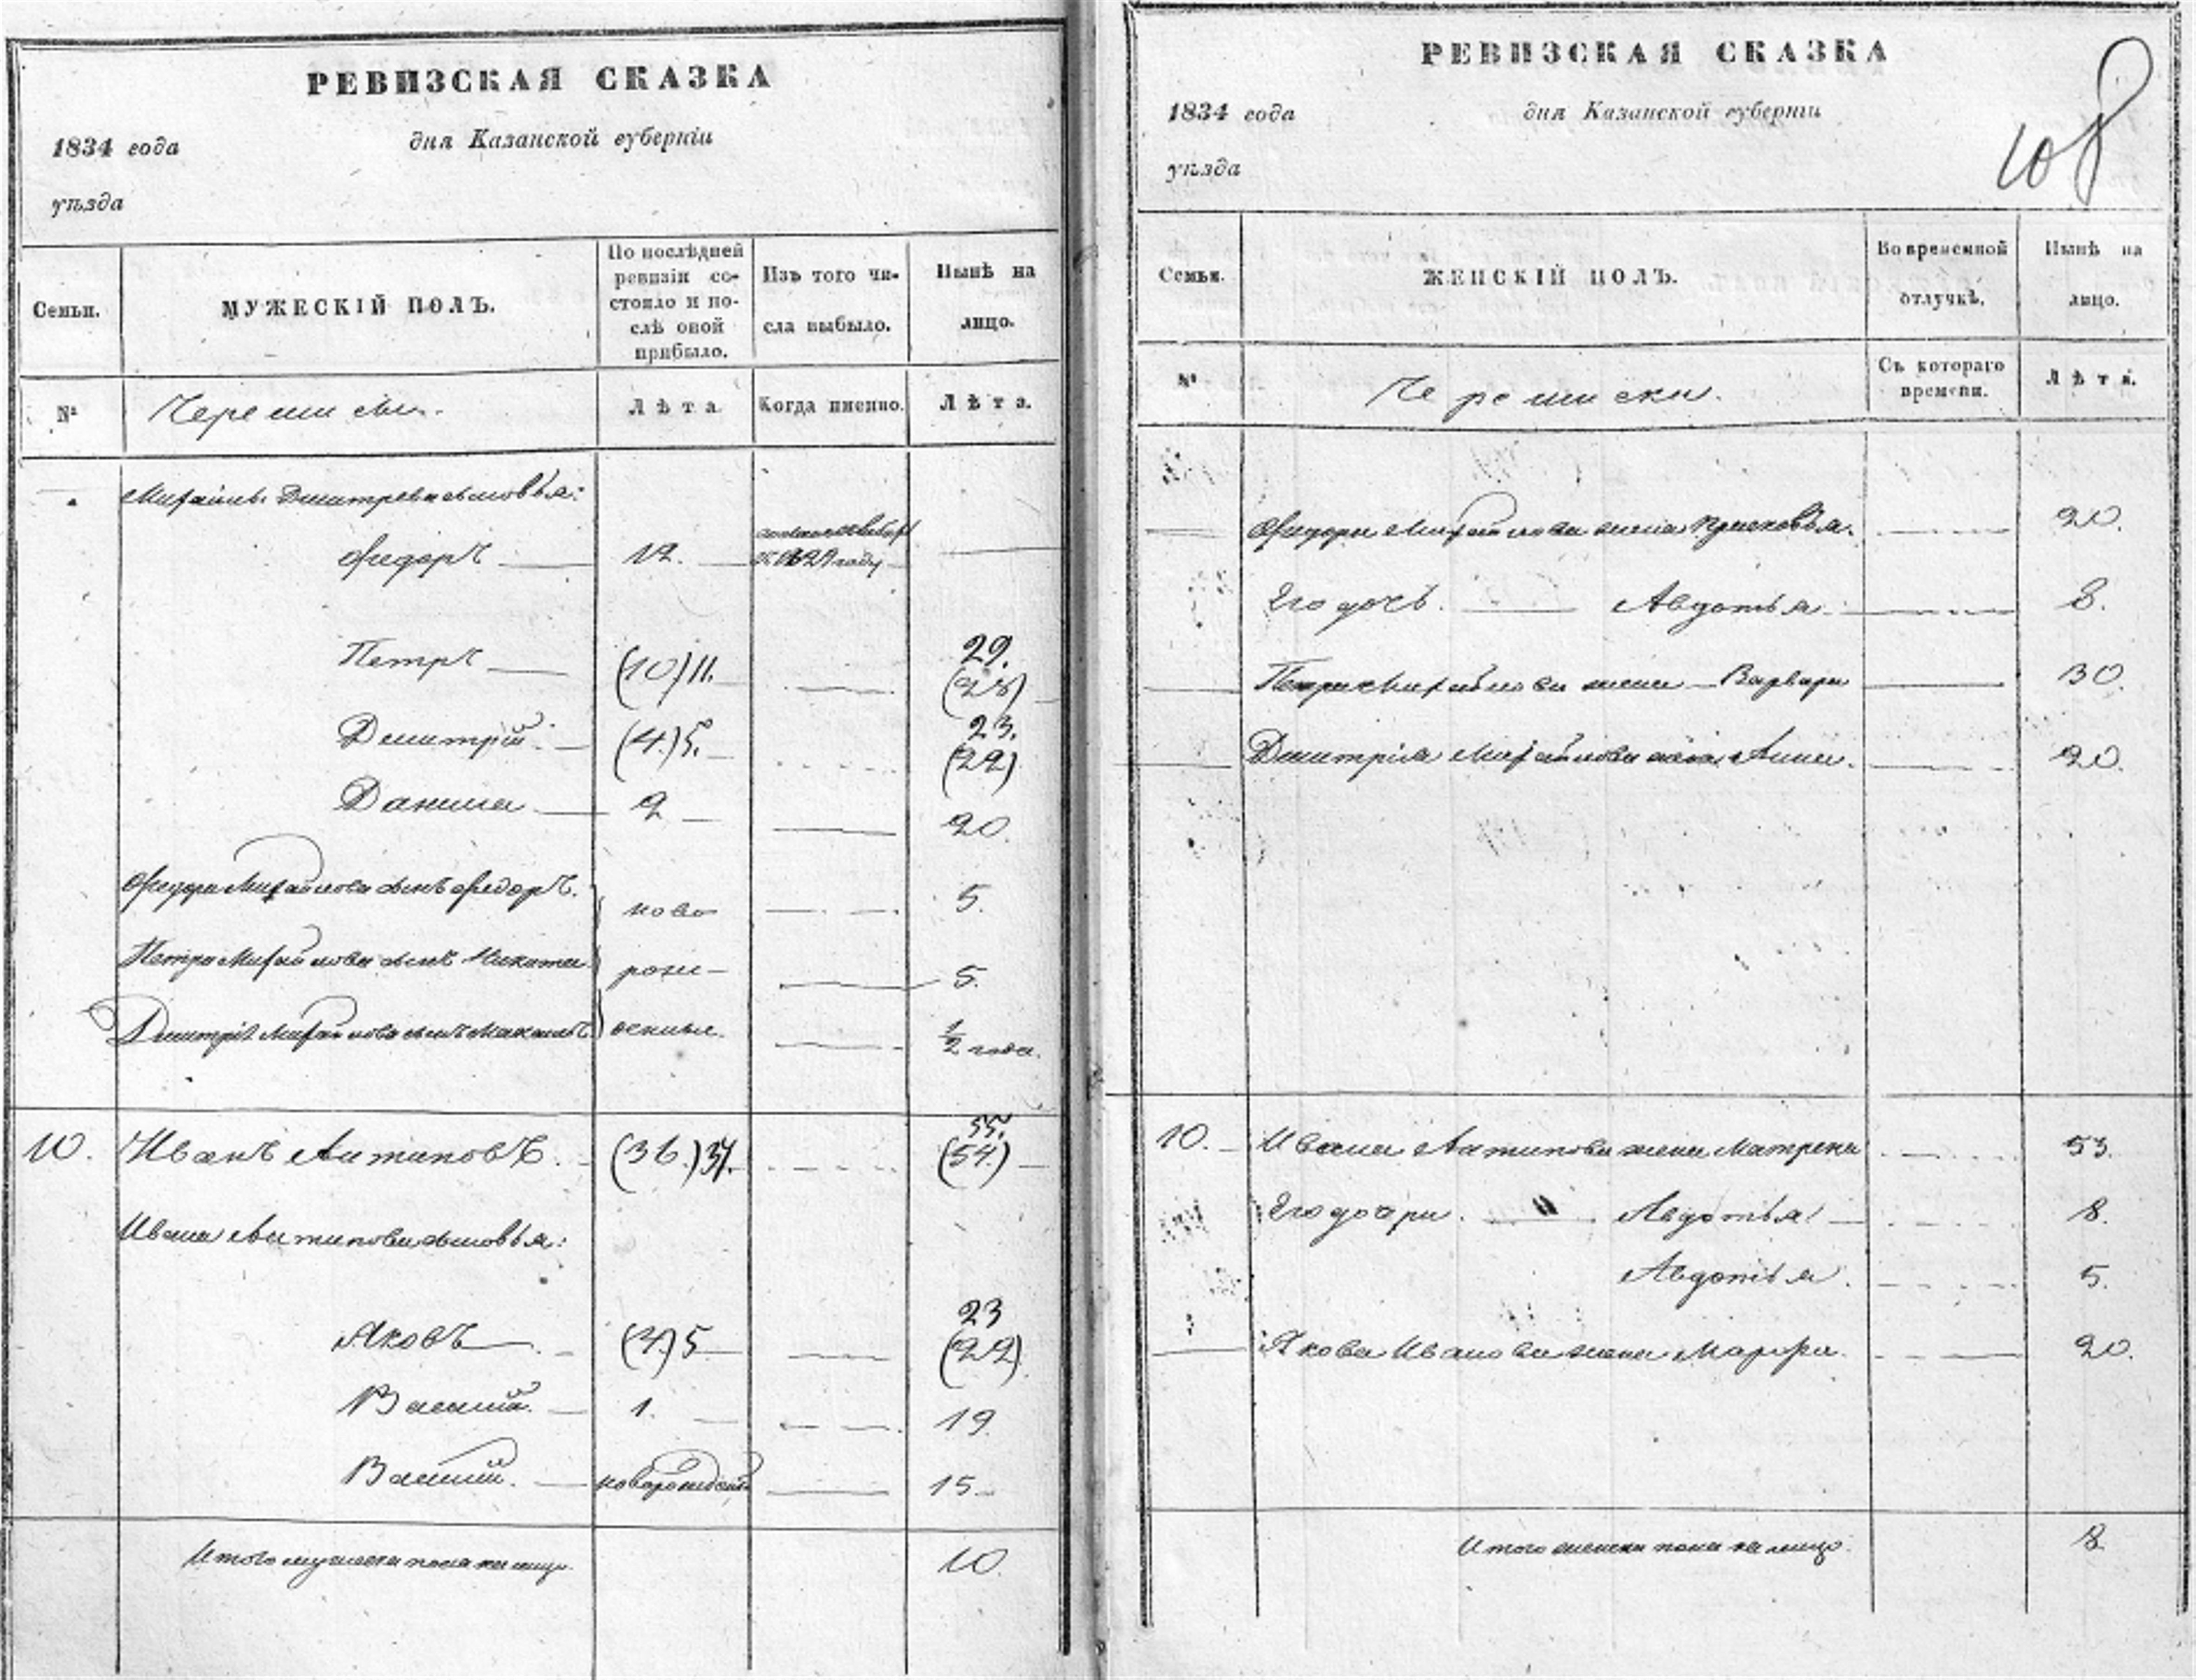 РЕВИЗСКАЯ СКАЗКА
1834 года
дня Казанской губерніи
уѣзда
Семьи.
МУЖЕСКІЙ ПОЛЪ.
По послѣдней ревизіи состояло и послѣ оной прибыло.
Изъ того числа выбыло.
Нынѣ на лицо.
№
Черемисы.
Лѣта.
Когда именно.
Лѣта.
Михайлы Дмитрева сыновья:
Федоръ 12. въ 1829 году
Петръ (10) 11. 29. (28)
Дмитрій (4.) 5. 23. (22)
Данила 2 20.
Федора Михайлова сынъ Федоръ. ново 5.
Петра Михайлова сынъ Никита рож- 5.
Дмитрія Михайлова сынъ Максимъ денные. 1/2 года.
10. Иванъ Антиповъ. (36.) 37. 55. (54.)
Ивана Антипова сыновья:
Яковъ (4.) 5 23 (22)
Василій. 1. 19
Василій. новорожденъ 15.
Итого мужеска пола на лицо 10.
РЕВИЗСКАЯ СКАЗКА
108
1834 года
дня Казанской губерніи
уѣзда
Семьи.
ЖЕНСКІЙ ПОЛЪ.
Во временной отлучкѣ.
Нынѣ на лицо.
№
Черемиски.
Съ котораго времени.
Лѣта.
Федора Михайлова жена Прасковья. 20.
Его дочь. Авдотья. 8.
Петра Михайлова жена Варвара 30.
Дмитрія Михайлова жена Анна. 20.
10. Ивана Антипова жена Матрена 53.
Его дочри. Авдотья 8.
Авдотья. 5.
Якова Иванова жена Марфа. 20.
Итого женска пола на лицо. 8